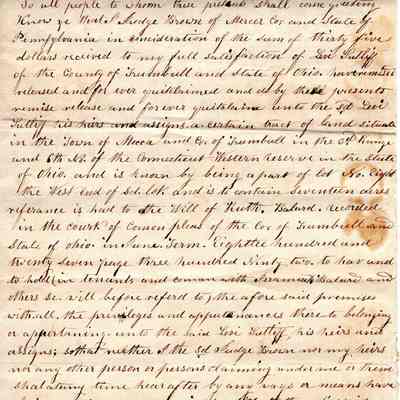 To all people to whom these presents shall come greeting
Know ye that I Judge Brown of Mercer Coy and State of
Pennsylvania in consideration of the sum of thirty five
dollars recived to my full satisfaction of Levi Sutliff
of the County of Trumbull and State of Ohio have remised
released and for ever quitclaimed and do by these presents
remise release and forever quitclaim unto the Sd Levi
Sutliff his heirs and assigns a certain tract of land situate
in the Town of Mecca and Co. of Trumbull in the Range
and 6th No. of the Connecticut Western Reserve in the State
of Ohio. and is known by being apart of lot No. Eight
the West end of Sd lot and is to contain Seventeen acres
referance is had to the Will of Ruth Balard. recorded
in the court of Common pleas of the Coy of Trumbull and
State of ohio in June Term. Eighttee hundred and
twenty Seven page three hundred Ninty two. to hav and
to hold in tenants and common with Balard and
others se. will before referd to, the afore said premises
withall the privileges and appurtenances there to belonging
or appertaining unto the said Levi Sutliff, his heirs and
assigns, so that neither I the Sd Judge Brown nor my heirs
nor any other person or persons claiming under me or them
shal at any time hear after by any ways or means have